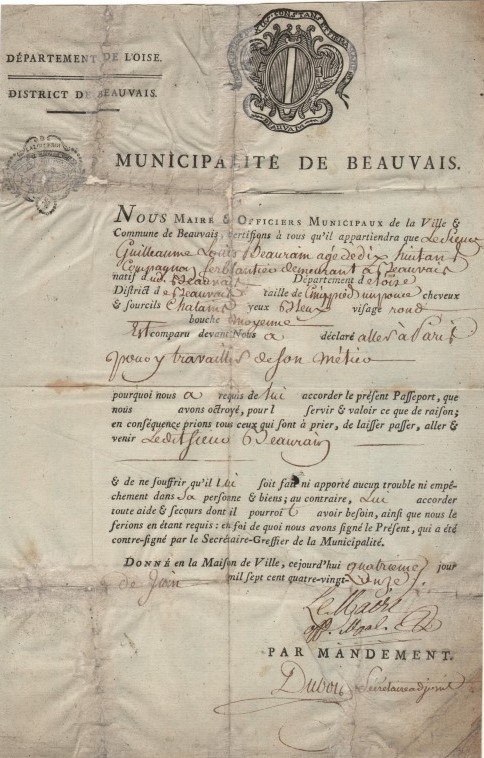 DÉPARTEMENT DE L'OISE.
DISTRICT DE BEAUVAIS.
BEAUVAIS
MUNICIPALITÉ DE BEAUVAIS.
NOUS MAIRE & OFFICIERS MUNICIPAUX de la Ville &
Commune de Beauvais, certifions à tous qu'il appartiendra que Le Sieur
Guilleaume Louis Beaurain agé de dix huit ans
Compagnon ferblantier demeurant à Beauvais
natif de Beauvais Département de loise
District de Beauvais taille de cinq pied un pouce cheveux
& sourcils Chatains yeux Bleux visage rond
bouche moyenne
Est comparu devant Nous a déclaré aller à Paris
pour y travailler de son métier
pourquoi nous a requis de lui accorder le présent Passeport, que
nous avons octroyé, pour l servir & valoir ce que de raison;
en conséquence prions tous ceux qui sont à prier, de laisser passer, aller &
venir Ledit Sieur Beaurain
& de ne souffrir qu'il lui soit fait ni apporté aucun trouble ni empê-
chement dans sa personne & biens; au contraire, lui accorder
toute aide & secours dont il pourroit avoir besoin, ainsi que nous le
ferions en étant requis: en foi de quoi nous avons signé le Présent, qui a été
contre-signé par le Secrétaire-Greffier de la Municipalité.
DONNÉ en la Maison de Ville, cejourd'hui quatrieme jour
de Juin mil sept cent quatre-vingt-onze
Le Maire
off. Mpal.
PAR MANDEMENT.
Dubois Secretaire adjoint